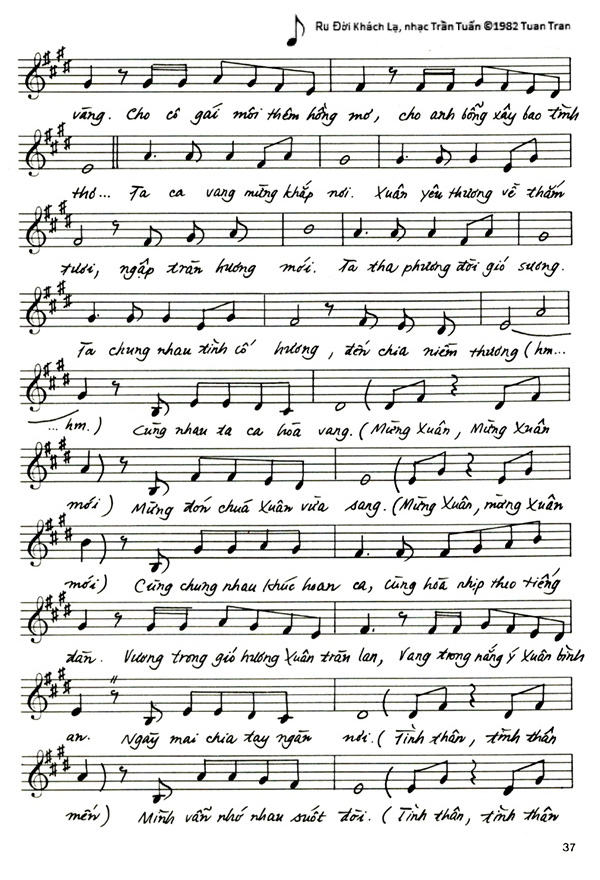 Ru Đời Khách Lạ, nhạc Trần Tuấn ©1982 Tuan Tran
vàng. Cho cô gái môi thêm hồng mơ, cho anh bỗng xây bao tình
thơ... Ta ca vang mừng khắp nơi. Xuân yêu thương về thắm
tươi, ngập tràn hương mới. Ta tha phương đời gió sương.
Ta chung nhau tình cố hương, đến chia niềm thương (hm...
... hm.) Cùng nhau ta ca hòa vang. (Mừng Xuân, Mừng Xuân
mới) Mừng đón chuá Xuân vừa sang. (Mừng Xuân, mừng Xuân
mới) Cùng chung nhau khúc hoan ca, cùng hòa nhịp theo tiếng
đàn. Vương trong gió hương Xuân tràn lan, Vang trong nắng ý Xuân bình
an. Ngày mai chia tay ngàn nơi. (Tình thân, tình thân
mến) Mình vẫn nhớ nhau suốt đời. (Tình thân, tình thân
37